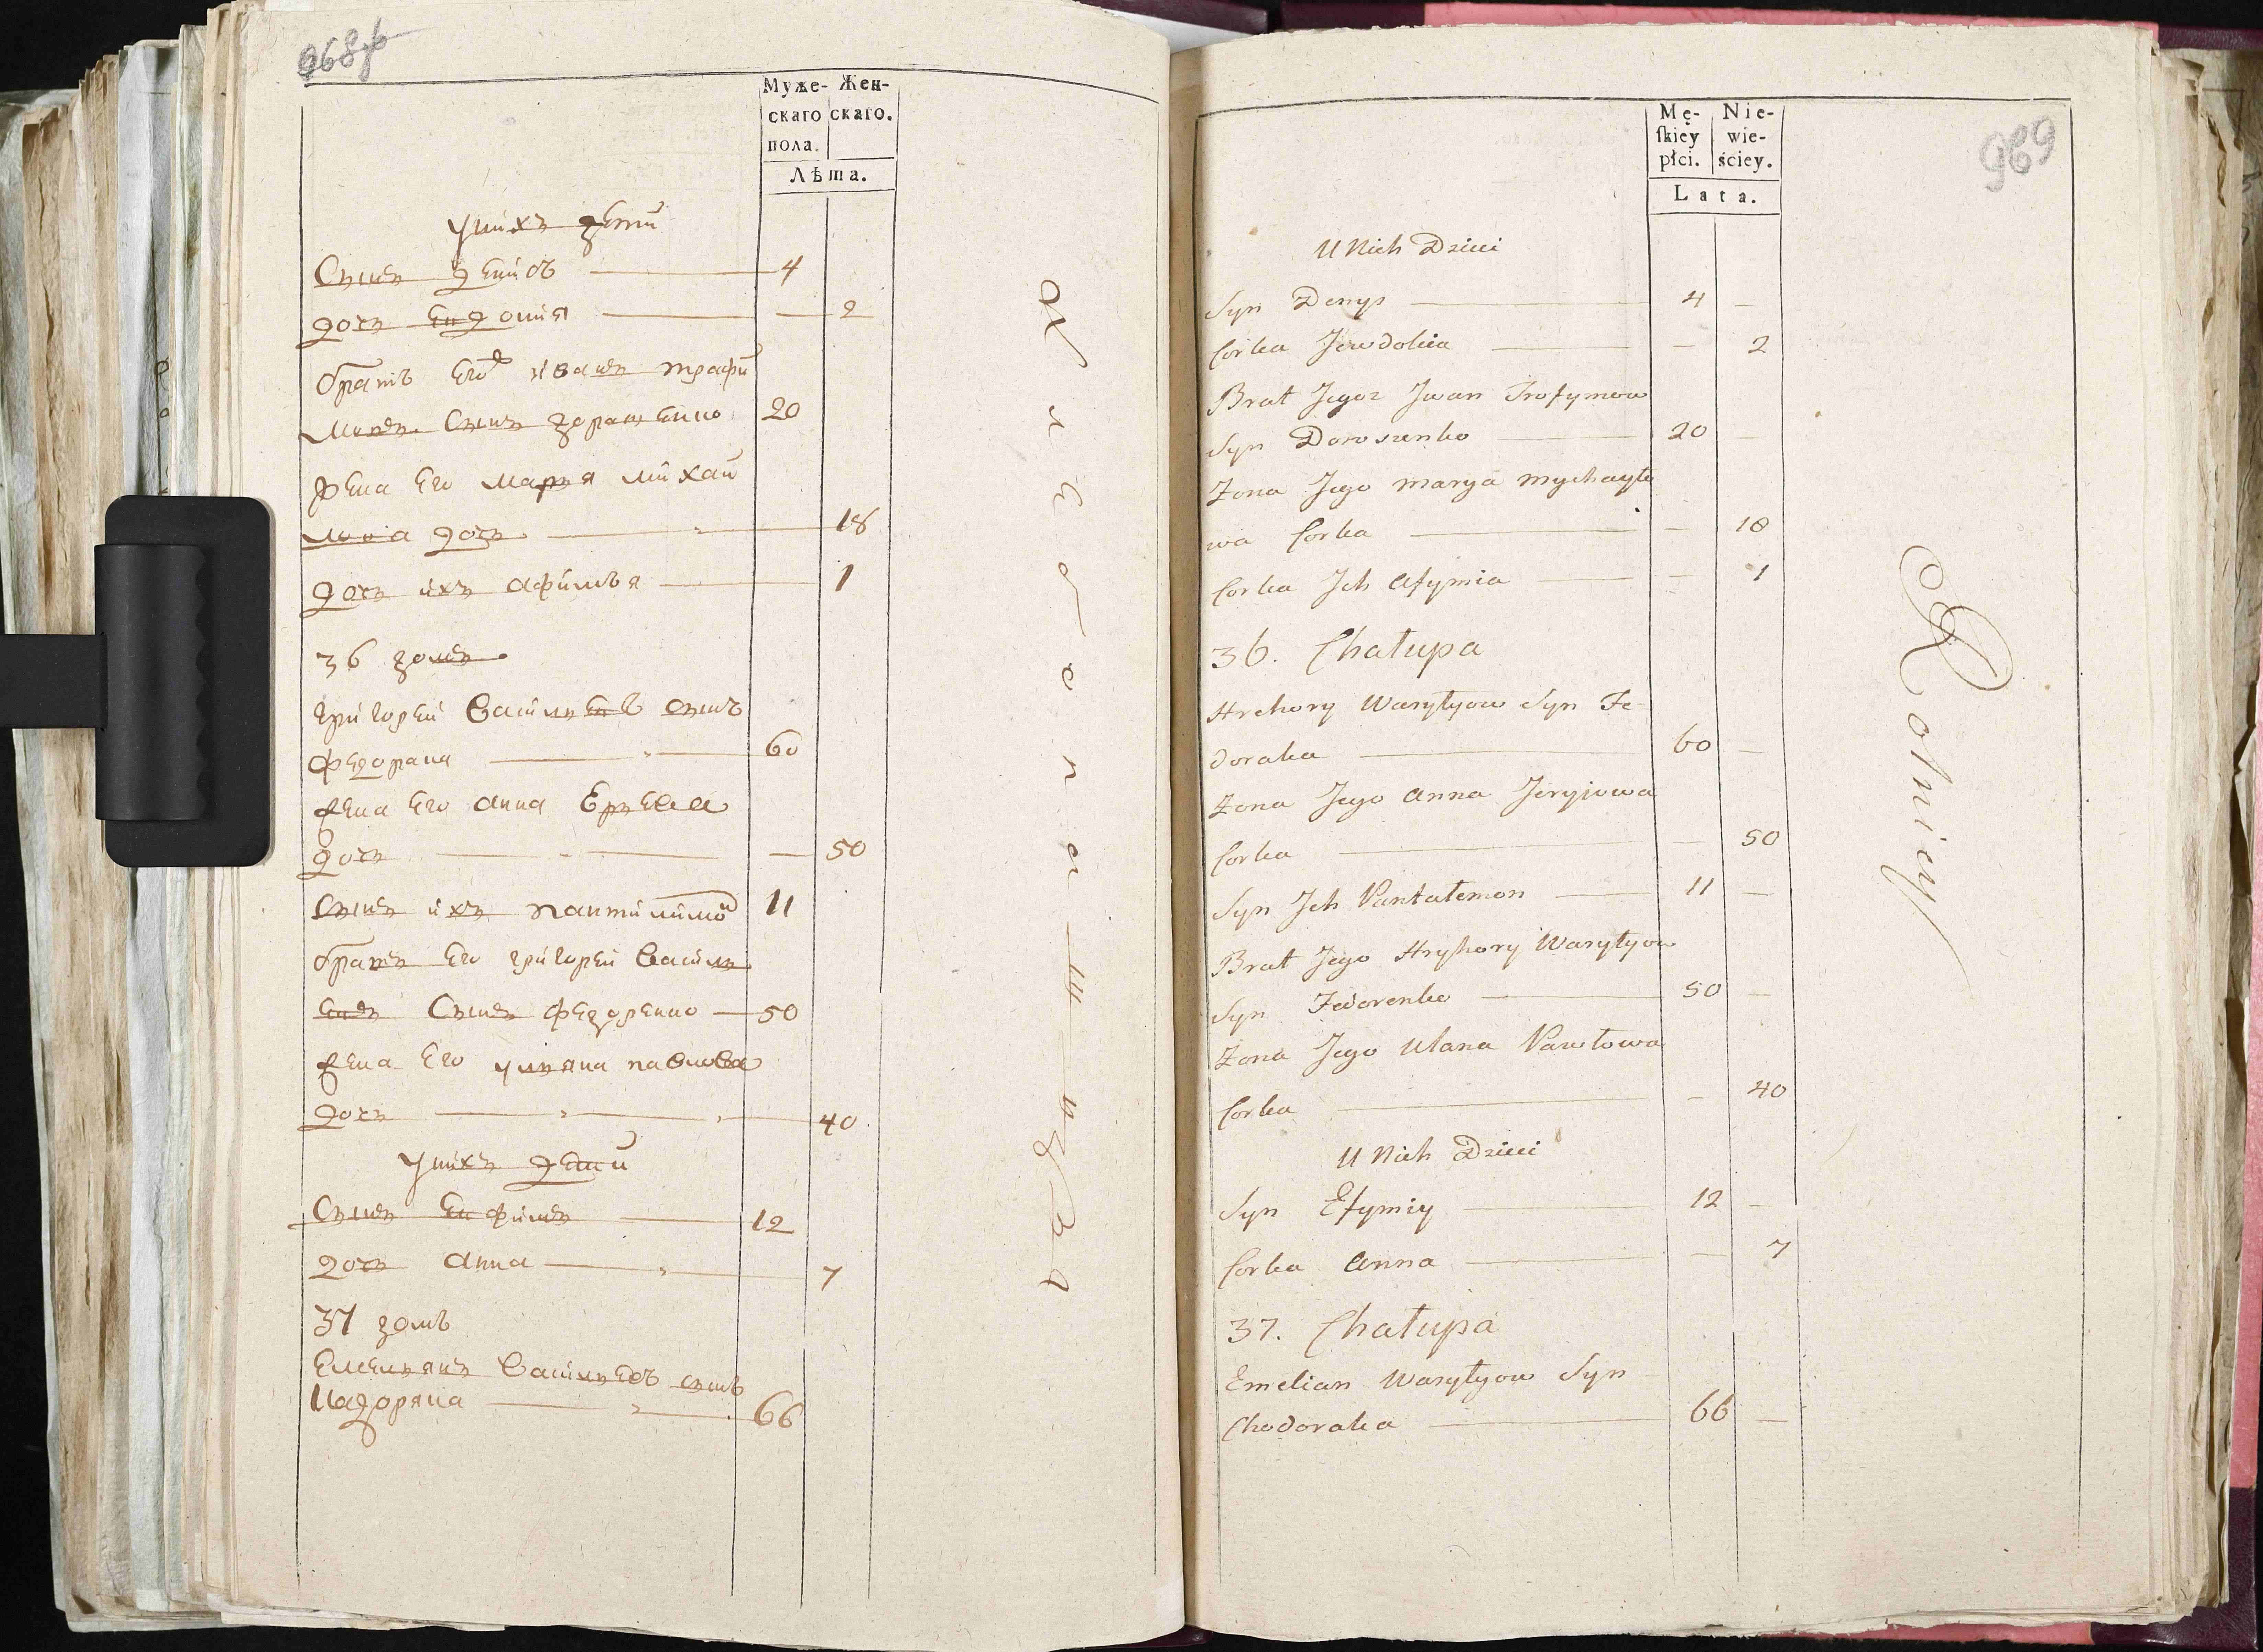 Муже- Жен-
скаго скаго.
пола.
Лѣта.
у нихъ дети
Сынъ денисъ 4
дочь Евдокия 2
братъ Его иванъ трофи
мовъ Сынъ дорошенко 20
жена Его марья михай
лова дочь 18
дочь ихъ афимья 1
36 домъ
григорей Васильевъ сынъ
федорака 60
жена Его анна Юрьева
дочь 50
Сынъ ихъ пантилимон 11
братъ Его григорей Василь
евъ Сынъ федоренко 50
жена Его ульяна павлова
дочь 40
у нихъ дети
Сынъ Ефимъ 12
дочь анна 7
37 домъ
Емельянъ Васильевъ сынъ
66
хлебопашцы
969
Mę- Nie-
skiey wie-
płci. ściey.
Lata.
U Nich Dzieci
Syn Denys 4 —
Corka Jewdokia — 2
Brat Jego Jwan Trofymow
Syn Doroszenko 20 —
Zona Jego Marya Mychayło
wa Corka — 18
Corka Jch Afymia — 1
36. Chałupa
Hrehory Wasylyow Syn Fe-
doraka 60 —
Zona Jego Anna Jeryiowa
Corka — 50
Syn Jch Pantalemon 11 —
Brat Jego Hryhory Wasylyow
Syn Fedorenko 50 —
Zona Jego Ulana Pawłowa
Corka — 40
U Nich Dzieci
Syn Efymiy 12 —
Corka Anna — 7
37. Chałupa
Emelian Wasylyow Syn
Chodoraka 66 —
Rolnicy